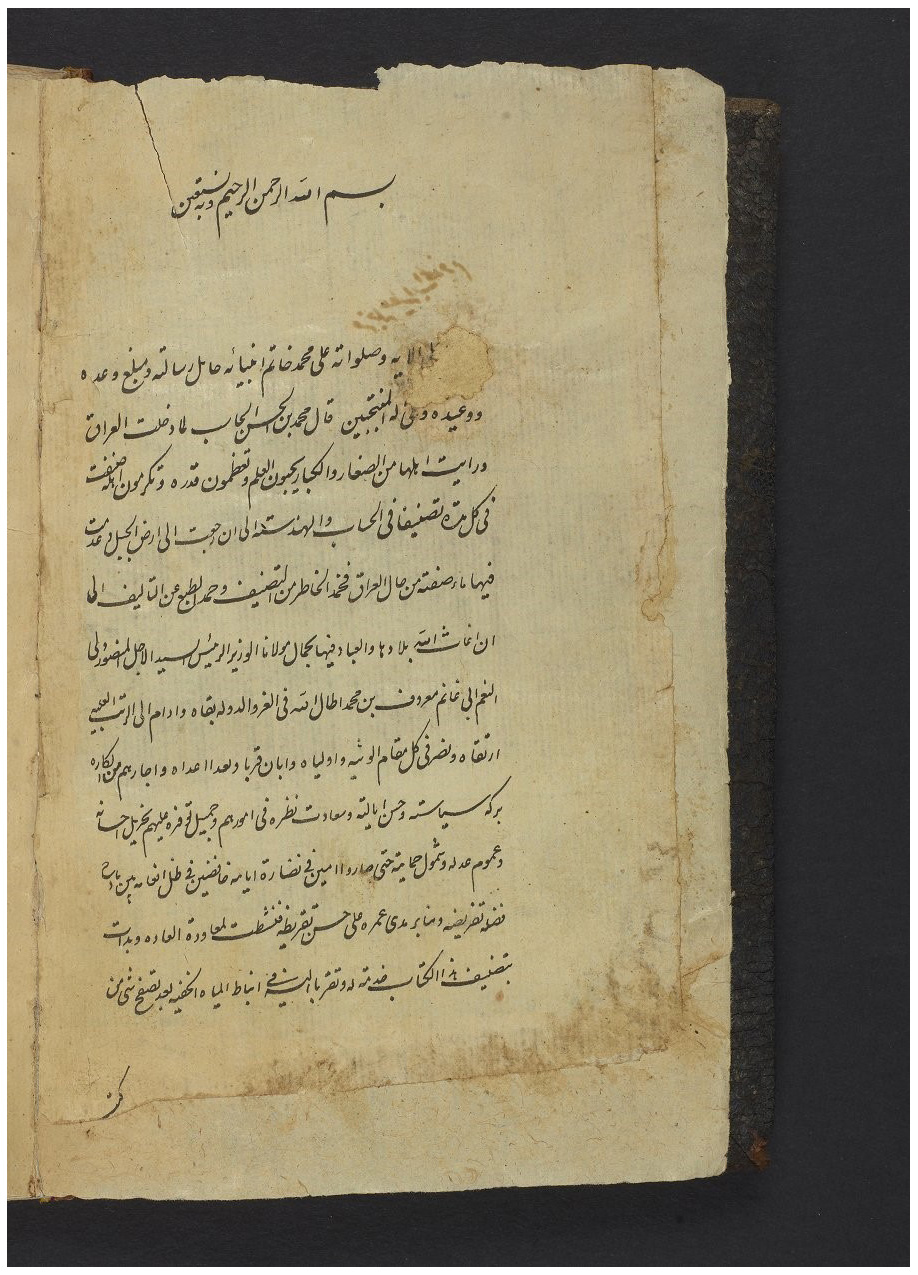 بسم الله الرحمن الرحيم وبه نستعين
وصلواته على محمد خاتم انبيائه حامل رسالته ومبلغ وعده
ووعيده وعلى اله المنتجبين قال محمد بن الحسن الحاسب لما دخلت العراق
ورايت اهلها من الصغار والكبار يحبون العلم وتعظمون قدره وتكرمون اهله صنفت
فى كل مدة تصنيفا فى الحساب والهندسة الى ان رجعت الى ارض الجبل
فيها ما صنفته من حال العراق فخمد الخاطر من التصنيف وجمد الطبع عن التاليف الى
ان اغاث الله بلادها والعباد فيها بجمال مولانا الوزير الرئيس السيد الاجل المنصور ولى
النعم ابى غانم معروف بن محمد اطال الله فى العز والدولة بقاه وادام الى الرتب العلية
ارتقاه ونصر فى كل مقام الويته واولياه وابان قربا وبعدا اعداه واجارهم من المكاره
بركة سياسته وحسن ايالته وسعادت نظره فى امورهم وجميل توفره عليهم بجزيل احسانه
وعموم عدله وشمول حمايته حتى صاروا امنين فى نضارة ايامه خافضين فى ظل انعامه بين
على حسن تقريظه فنشطت لمعاودة العاده وبدات
بتصنيف هذا الكتاب خدمة له وتقربا اليه فى انباط المياه الخفيه بعد تصفح شى من
كتب